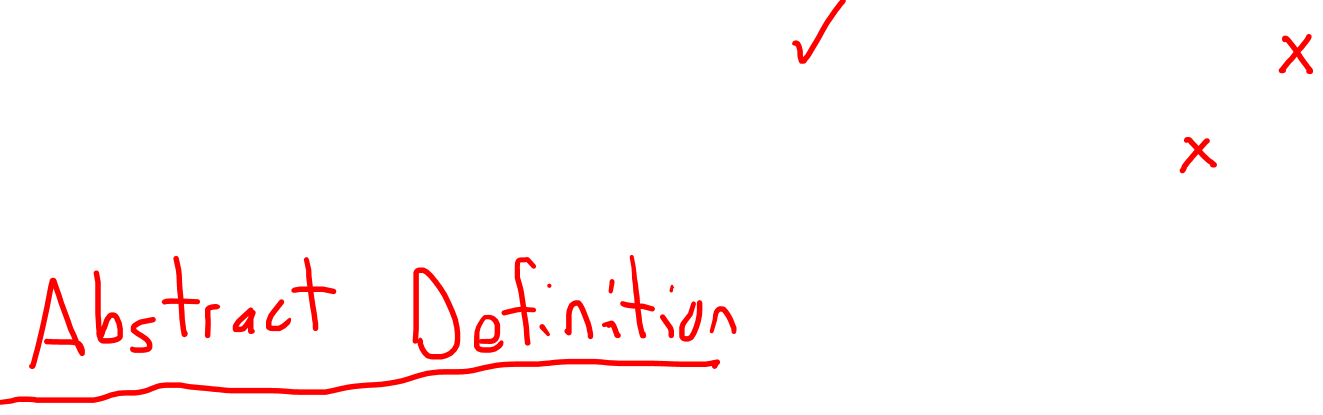 ✓ x
x
Abstract Definition